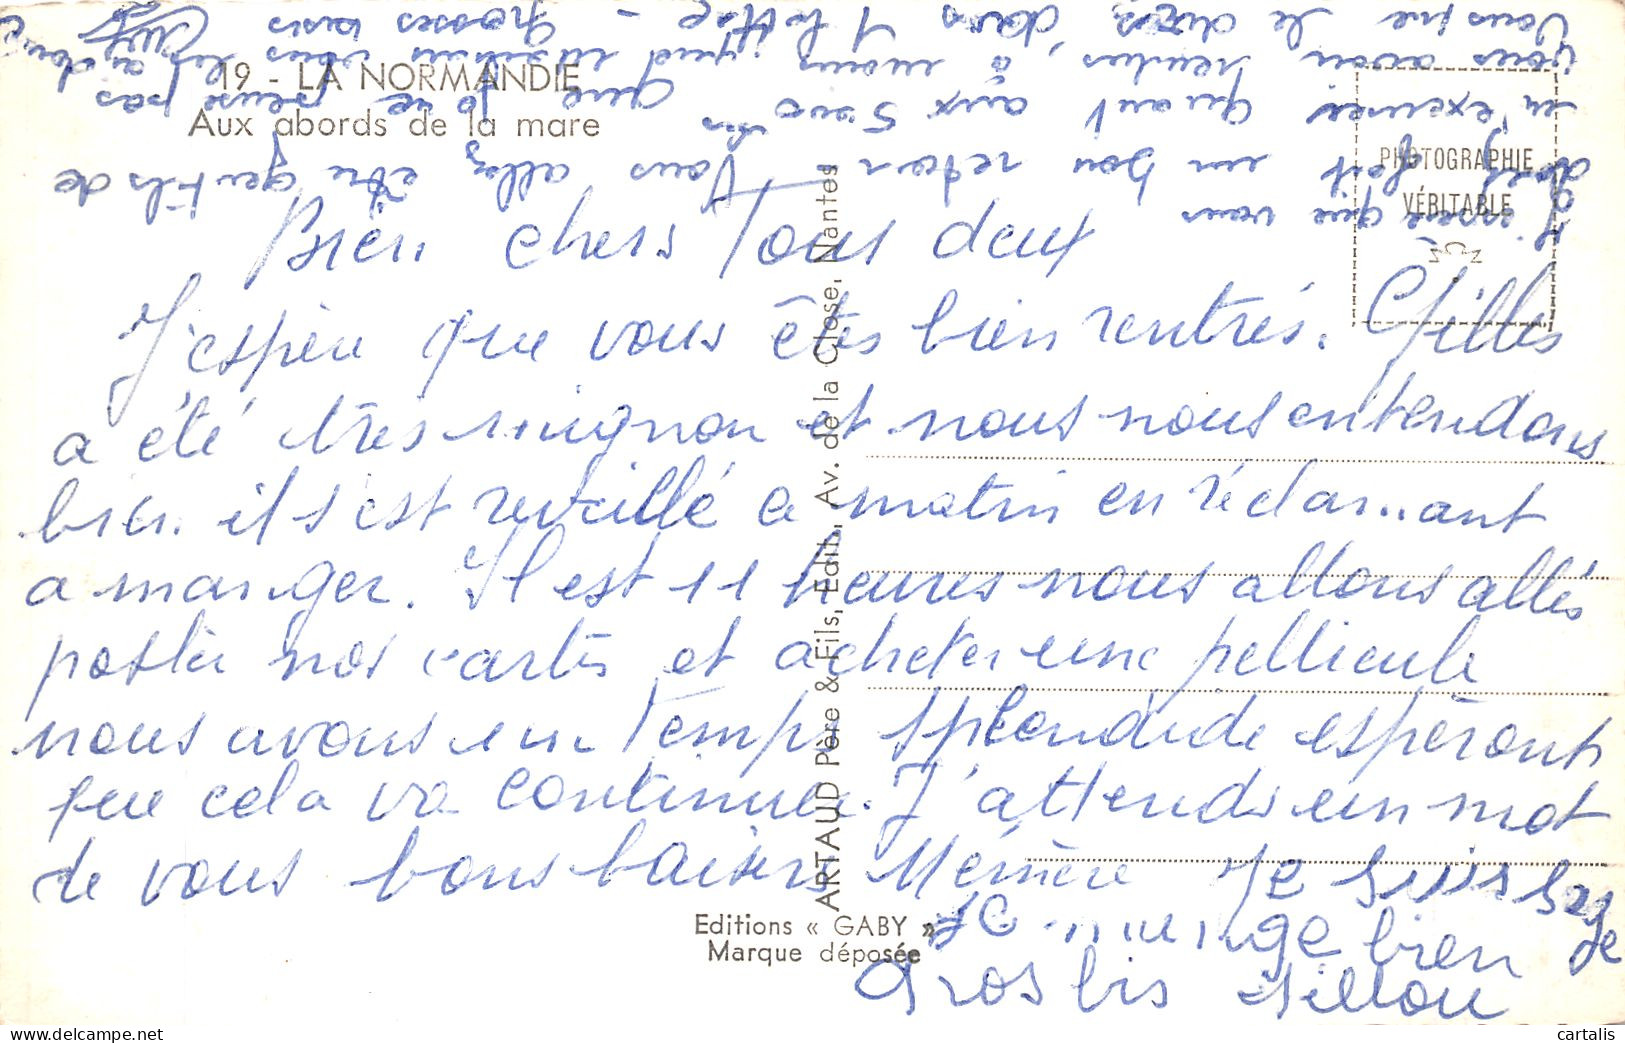 19 - LA NORMANDIE
Aux abords de la mare
PHOTOGRAPHIE
VÉRITABLE
Bien chers Tous deux
J'espère que vous êtes bien rentrés. Gilles
a été très mignon et nous nous entendons
bien. il s'est reveillé ce matin en réclamant
a manger. Il est 11 heures nous allons allés
poster nos cartes et acheter une pellicule
nous avons un Temps splendide espéront
que cela va continuer. J'attends un mot
de vous bons baisers Mémère Je suis sage
Je mange bien
Gros bis Gillou
ARTAUD Père & Fils, Edit. Av. de la Close, Nantes
Editions « GABY »
Marque déposée
J'espère que vous
avez fait un bon retour Vous allez être gentils de
m'excuser quant aux 5000 frs que je ne pense pas
vous avoir rendus, à moins
Vous me le direz, dans 1 lettre -
Grosses bises
cartalis.com